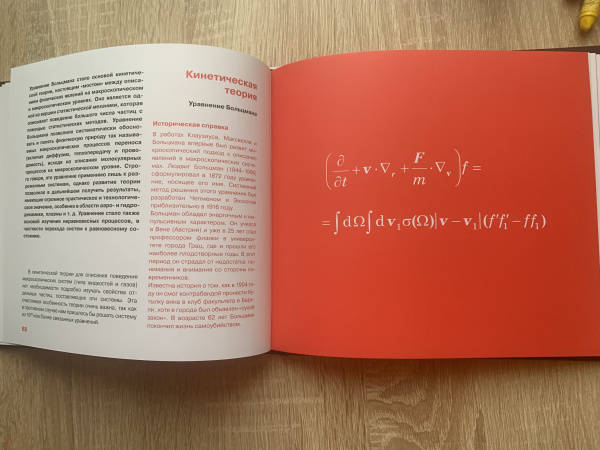 Уравнение Больцмана стало основой кинетичес-
кой теории, настоящим «мостом» между описа-
ниями физических явлений на макроскопическом
и микроскопическом уровнях. Оно является од-
ной из вершин статистической механики, которая
описывает поведение большого числа частиц с
помощью статистических методов. Уравнение
Больцмана позволило систематически обосно-
вать и понять физическую природу так называ-
емых макроскопических процессов переноса
(включая диффузию, теплопередачу и прово-
димость), исходя из описания молекулярных
процессов на микроскопическом уровне. Стро-
го говоря, это уравнение применимо лишь к раз-
реженным системам, однако развитие теории
позволило в дальнейшем получить результаты,
имеющие огромное практическое и технологиче-
ское значение, особенно в области аэро- и гидро-
динамики, плазмы и т. д. Уравнение стало также
основой изучения неравновесных процессов, в
частности перехода систем к равновесному со-
стоянию.
В кинетической теории для описания поведения
макроскопических систем (типа жидкостей и газов)
нет необходимости подробно изучать свойства от-
дельных частиц, составляющих эти системы. Эта
счастливая особенность теории очень важна, так как
в противном случае нам пришлось бы решать систему
из 10²³ или более связанных уравнений.
Кинетическая
теория
Уравнение Больцмана
Историческая справка
В работах Клаузиуса, Максвелла и
Больцмана впервые был развит мик-
роскопический подход к описанию
явлений в макроскопических систе-
мах. Людвиг Больцман (1844–1906)
сформулировал в 1872 году уравне-
ние, носящее его имя. Системный
метод решения этого уравнения был
разработан Чепменом и Энскогом
приблизительно в 1916 году.
Больцман обладал энергичным и им-
пульсивным характером. Он учился
в Вене (Австрия) и уже в 25 лет стал
профессором физики в универси-
тете города Грац, и прошли его
наиболее плодотворные годы. В этот
период он страдал от недостатка по-
нимания и внимания со стороны сов-
ременников.
Известна история о том, как в 1904 го-
ду он смог контрабандой пронести бу-
тылку вина в клуб факультета в Берк-
ли, хотя в городе был объявлен «сухой
закон». В возрасте 62 лет Больцман
покончил жизнь самоубийством.
(∂/∂t + v · ∇ᵣ + F/m · ∇ᵥ) f =
= ∫ dΩ ∫ d v₁ σ(Ω)|v − v₁|(f′f′₁ − ff₁)